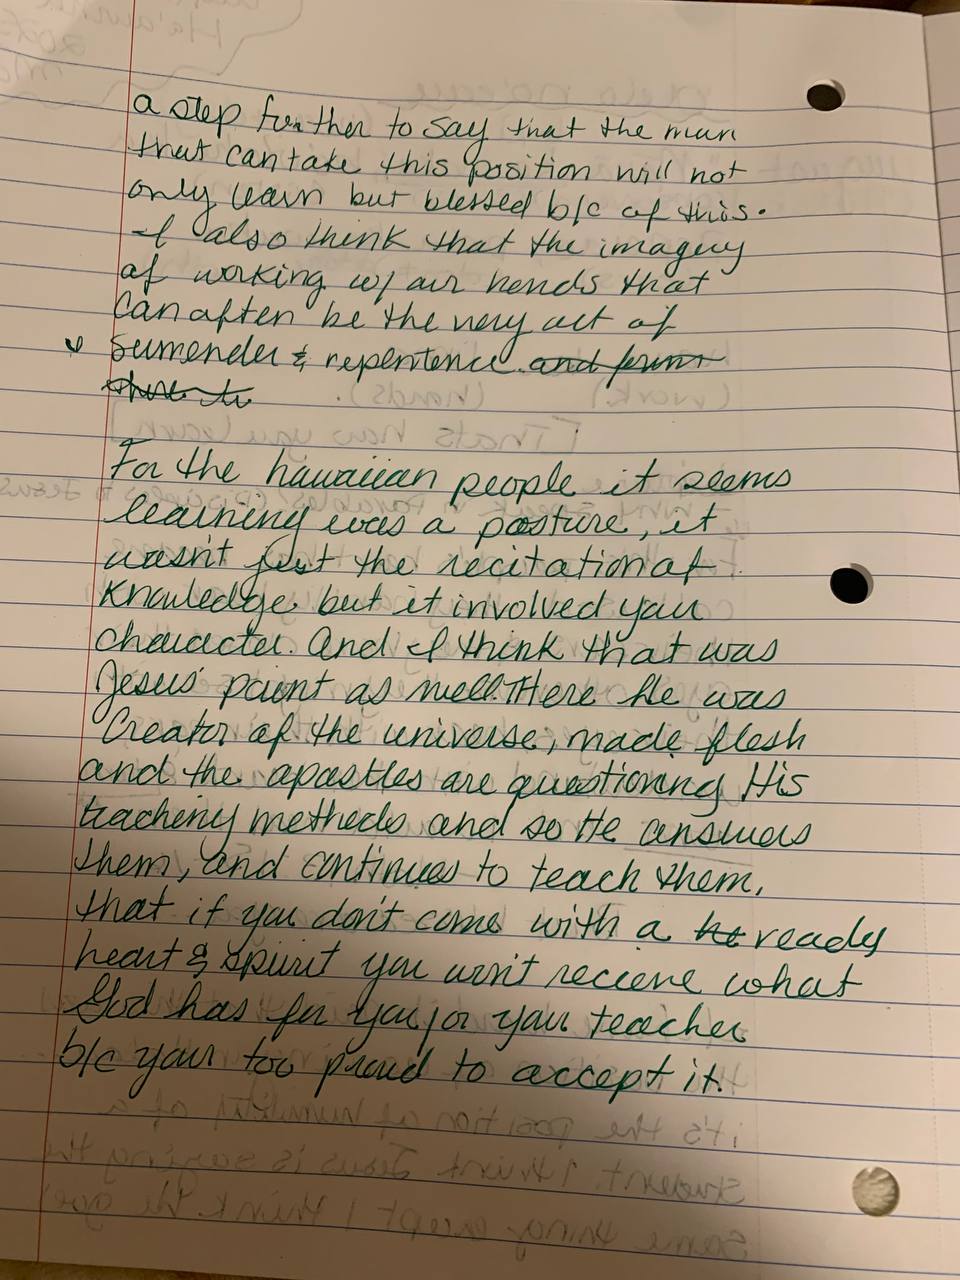 a step further to say that the man
that can take this position will not
only learn but blessed b/c of this.
I also think that the imagery
of working w/ our hends that
can often be the very act of
surrender & repentence and form
there to
For the hawaiian people it seems
learning was a posture, it
wasn't just the recitation of
knowledge but it involved your
character. And I think that was
Jesus' point as well. Here He was
Creator of the universe, made flesh
and the apostles are questioning His
teaching methods and so He answers
them, and continues to teach them,
that if you don't come with a he ready
heart & spirit you won't recieve what
God has for you/or your teacher
b/c your too proud to accept it.
it's the position of humility of a
student. I think Jesus is saying the
same thing except I think He goes